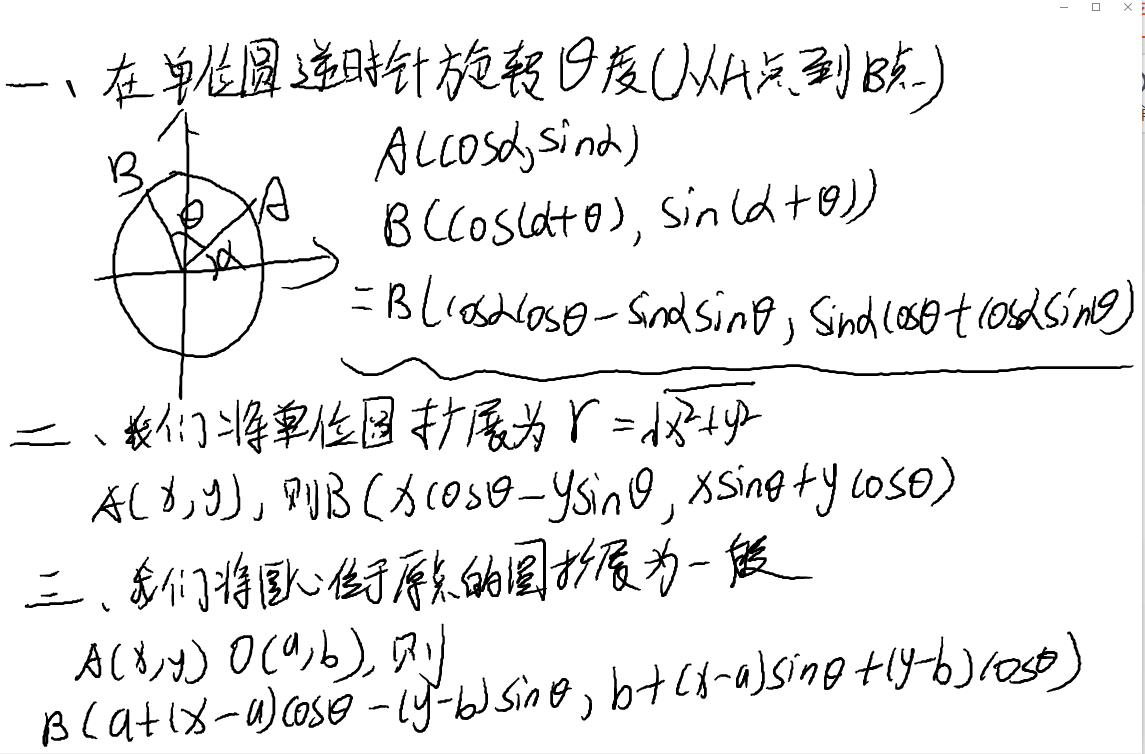 一、在单位圆逆时针旋转θ度(从A点到B点)
A(cosα, sinα)
B θ A
B(cos(α+θ), sin(α+θ))
α
=B(cosαcosθ-sinαsinθ, sinαcosθ+cosαsinθ)
二、我们将单位圆扩展为r=√x²+y²
A(x,y), 则B(xcosθ-ysinθ, xsinθ+ycosθ)
三、我们将圆心位于原点的圆扩展为一般
A(x,y) O(a,b), 则
B(a+(x-a)cosθ-(y-b)sinθ, b+(x-a)sinθ+(y-b)cosθ)